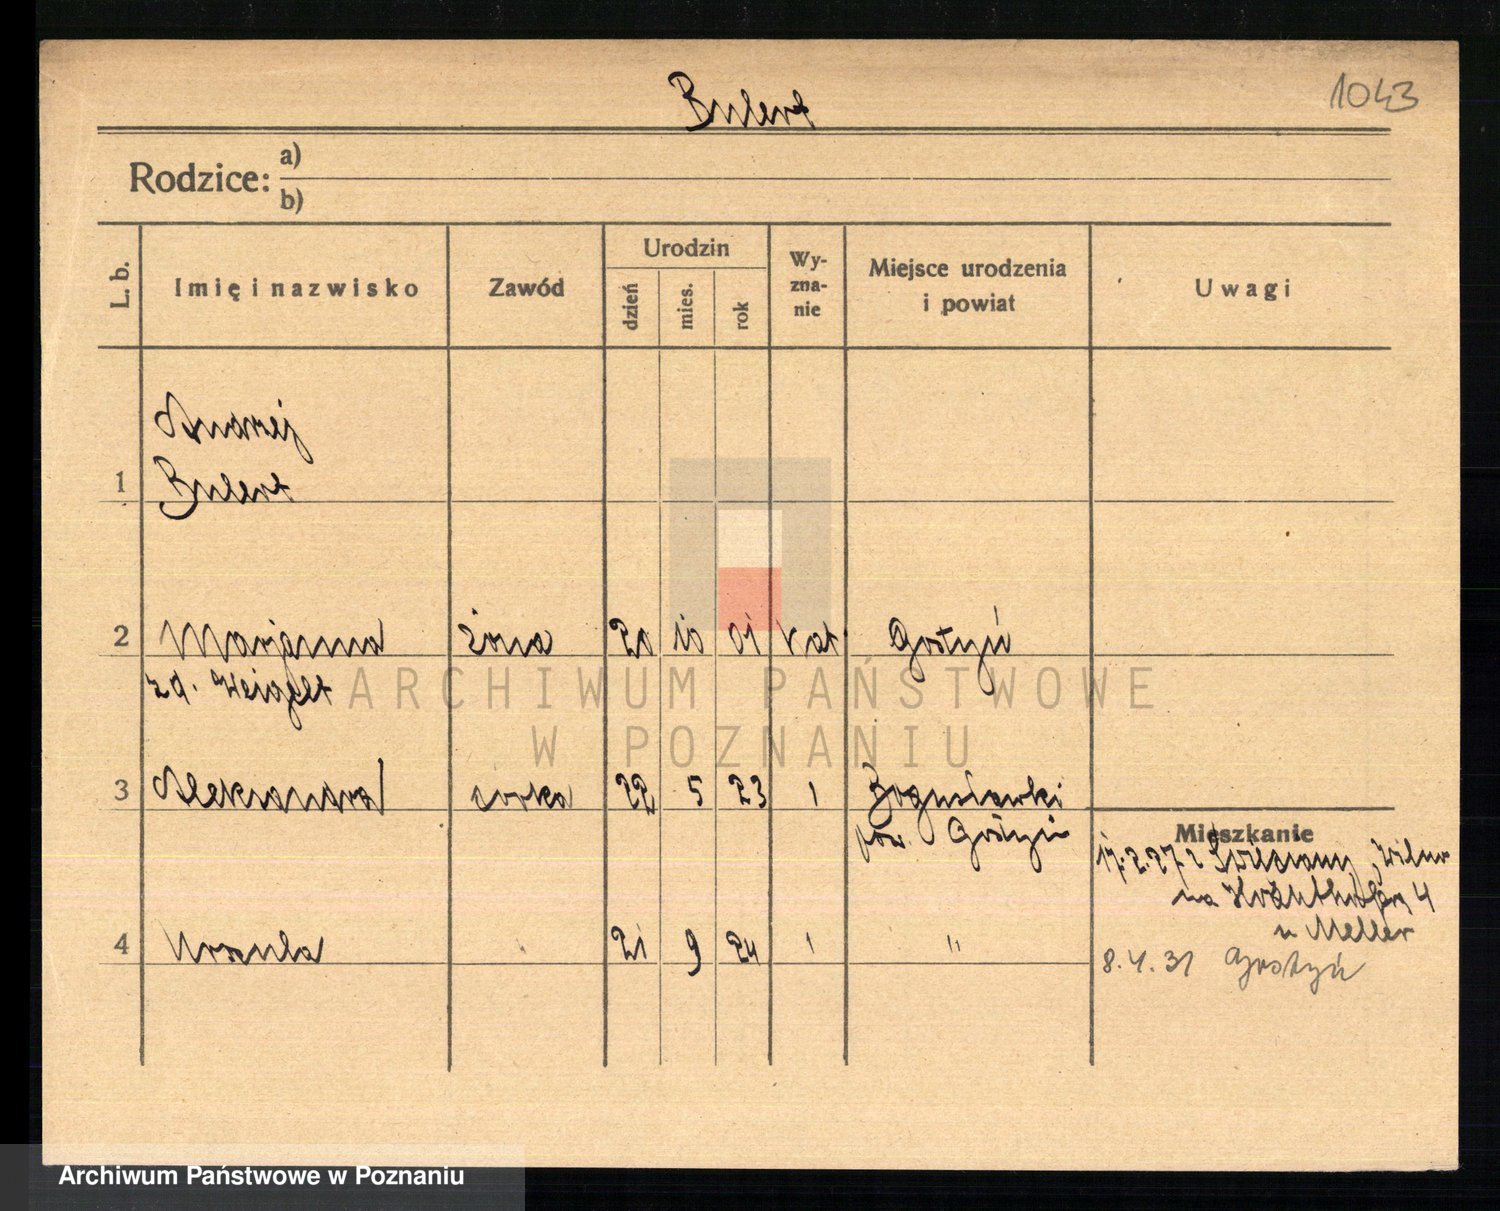 Bulert
1043
Rodzice: a)
b)
L. b.
Imię i nazwisko
Zawód
Urodzin
dzień
mies.
rok
Wy-
zna-
nie
Miejsce urodzenia
i powiat
Uwagi
Andrzej
1 Bulert
2 Marjanna żona 20 10 01 kat Gostyń
zd. Weigelt
3 Aleksandra córka 22 5 23 " Bogusławki
pow. Gostyń
Mieszkanie
17.2.27 z
na 4
u Meller
4 Urszula " 21 9 24 " "
8.4.31 Gostyń
ARCHIWUM PAŃSTWOWE
W POZNANIU
Archiwum Państwowe w Poznaniu